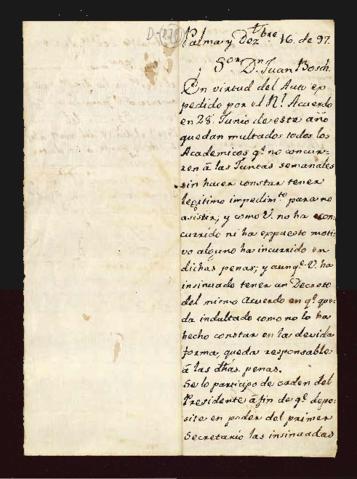 Palma y Dez.bre 16. de 97.
S.or D.n Juan Bosch.
En virtud del Auto ex-
pedido por el R.l Acuerdo
en 28 Junio de este año
quedan multados todos los
Academicos q.e no concur-
ren à las Juntas semanales
sin hacer constar tener
legitimo impedim.to para no
asistir; y como V. no ha con-
currido ni ha expuesto moti-
vo alguno ha incurrido en
dichas penas; y aunq.e V. ha
insinuado tener un Decreto
del mismo Acuerdo en q.e que-
da indultado como no lo ha
hecho constar en la devida
forma, queda responsable
à las dhàs penas.
Se lo participo de orden del
Presidente à fin de q.e depo-
site en poder del primer
Secretario las insinuadas